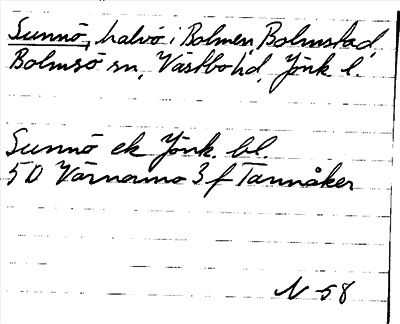 Sunnö, halvö i Bolmen, Bolmstad,
Bolmsö sn, Västbo hd, Jönk l.
Sunnö ek Jönk. bl.
5D Värnamo 3f Tannåker
N-58